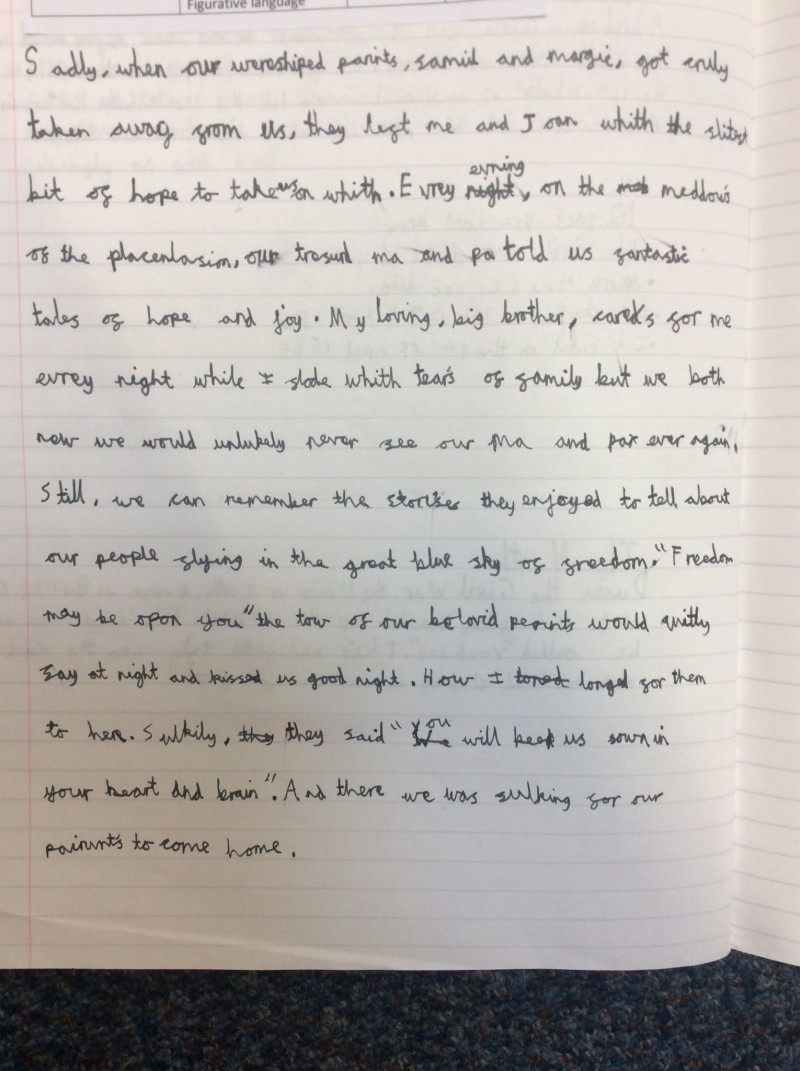 Figurative language
Sadly, when our wereshiped parints, samil and margie, got cruly
taken away from us, they left me and J oan whith the slitest
bit of hope to take us on whith. Evrey night evning, on the meddows
of the placentasion, our tresurd ma and pa told us fantastic
tales of hope and joy. My loving, big brother, careds for me
evrey night while I slobe whith tears of family but we both
new we would unlukely never see our ma and par ever again.
Still, we can remember the storises they enjoyed to tell about
our people flying in the great blue sky of freedom. "Freedom
may be opon you" the tow of our belovid perints would quitly
say at night and kissed us good night. How I longed for them
to here. Sulkily, they they said "You will keep us sown in
your heart and brain". And there we was sulking for our
pairunts to come home.